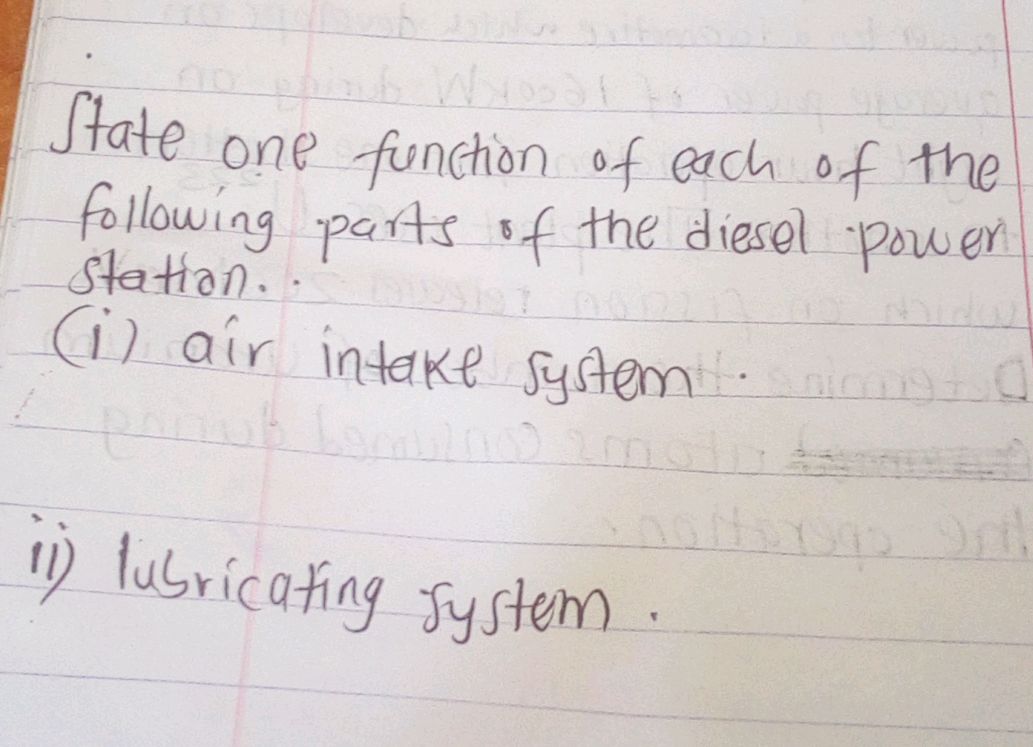 State one function of each of the
following parts of the diesel power
station.
(i) air intake system.
ii) lubricating system.